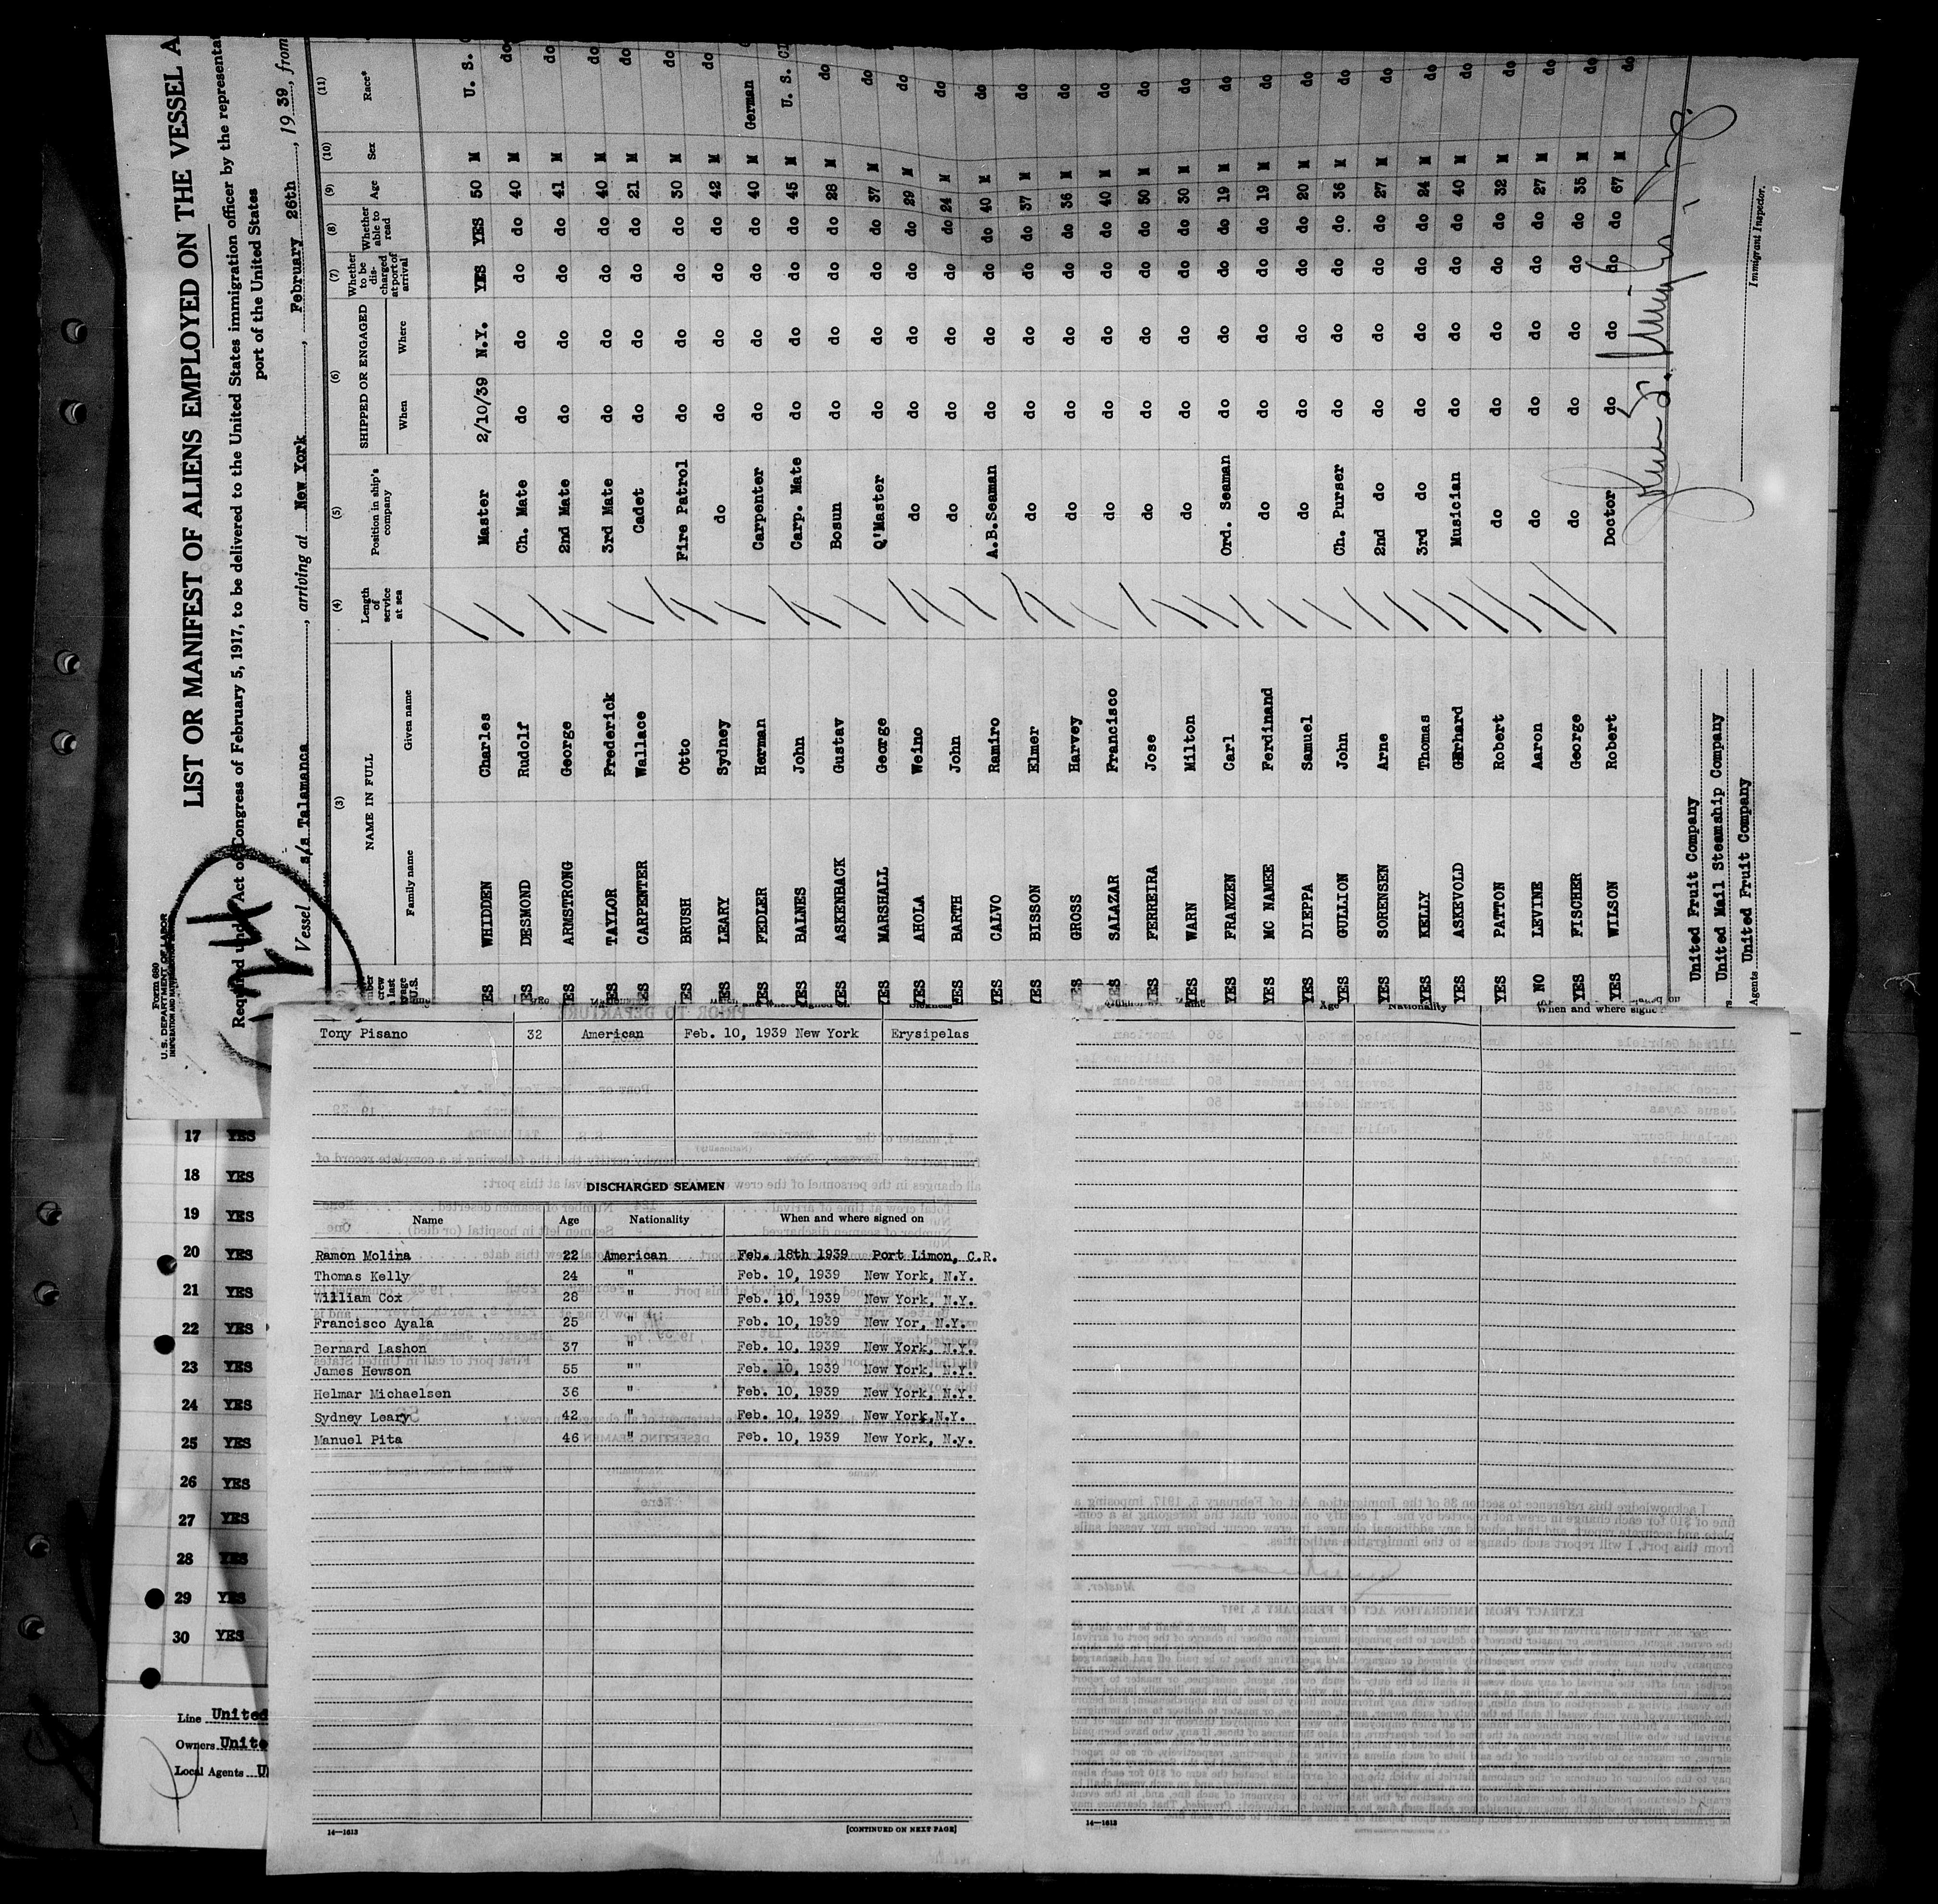 Form 680
U.S. DEPARTMENT OF LABOR
LIST OR MANIFEST OF ALIENS EMPLOYED ON THE VESSEL A
Required under Act of Congress of February 5, 1917, to be delivered to the United States immigration officer by the representat
port of the United States
Vessel s/s Talamanca, arriving at New York, February 26th, 19 39, from
(3) (4) (5) (6) (7) (8) (9) (10) (11)
NAME IN FULL Length of service at sea Position in ship's company SHIPPED OR ENGAGED Whether to be discharged at port of arrival Whether able to read Age Sex Race*
Family name Given name When Where
YES WHIDDEN Charles Master 2/10/39 N.Y. YES YES 50 M U. S.
YES DESMOND Rudolf Ch. Mate do do do do 40 M do
YES ARMSTRONG George 2nd Mate do do do do 41 M do
YES TAYLOR Frederick 3rd Mate do do do do 40 M do
YES CARPENTER Wallace Cadet do do do do 21 M do
YES BRUSH Otto Fire Patrol do do do do 30 M do
YES LEARY Sydney do do do do do 42 M do
YES FEDLER Herman Carpenter do do do do 40 M German
YES BALNES John Carp. Mate do do do do 45 M U. S. CI
YES ASKENBACK Gustav Bosun do do do do 28 M do
YES MARSHALL George Q'Master do do do do 37 M do
YES AHOLA Weino do do do do do 29 M do
YES BARTH John do do do do do 24 M do
YES CALVO Ramiro A.B.Seaman do do do do 40 M do
YES BISSON Elmer do do do do do 37 M do
YES GROSS Harvey do do do do do 36 M do
YES SALAZAR Francisco do do do do do 40 M do
YES FERREIRA Jose do do do do do 50 M do
YES WARN Milton do do do do do 30 M do
YES FRANZEN Carl Ord. Seaman do do do do 19 M do
YES MC NAMEE Ferdinand do do do do do 19 M do
YES DIEPPA Samuel do do do do do 20 M do
YES GULLION John Ch. Purser do do do do 36 M do
YES SORENSEN Arne 2nd do do do do do 27 M do
YES KELLY Thomas 3rd do do do do do 24 M do
YES ASKEVOLD Gerhard Musician do do do do 40 M do
YES PATTON Robert do do do do do 32 M do
NO LEVINE Aaron do do do do do 27 M do
YES FISCHER George do do do do do 35 M do
YES WILSON Robert Doctor do do do do 67 M do
United Fruit Company
United Mail Steamship Company
Agents United Fruit Company
Immigrant Inspector.
Age Nationality When and where signe
Tony Pisano 32 American Feb. 10, 1939 New York Erysipelas
DISCHARGED SEAMEN
Name Age Nationality When and where signed on
Ramon Molina 22 American Feb. 18th 1939 Port Limon, C.R.
Thomas Kelly 24 " Feb. 10, 1939 New York, N.Y.
William Cox 28 " Feb. 10, 1939 New York, N.Y.
Francisco Ayala 25 " Feb. 10, 1939 New Yor, N.Y.
Bernard Lashon 37 " Feb. 10, 1939 New York, N.Y.
James Hewson 55 "" Feb. 10, 1939 New York, N.Y.
Helmar Michaelsen 36 " Feb. 10, 1939 New York, N.Y.
Sydney Leary 42 " Feb. 10, 1939 New York,N.Y.
Manuel Pita 46 " Feb. 10, 1939 New York, N.y.
14—1613 [CONTINUED ON NEXT PAGE]
14—1613
17 YES
18 YES
19 YES
20 YES
21 YES
22 YES
23 YES
24 YES
25 YES
26 YES
27 YES
28 YES
29 YES
30 YES
Line United
Owners Unite
Local Agents U